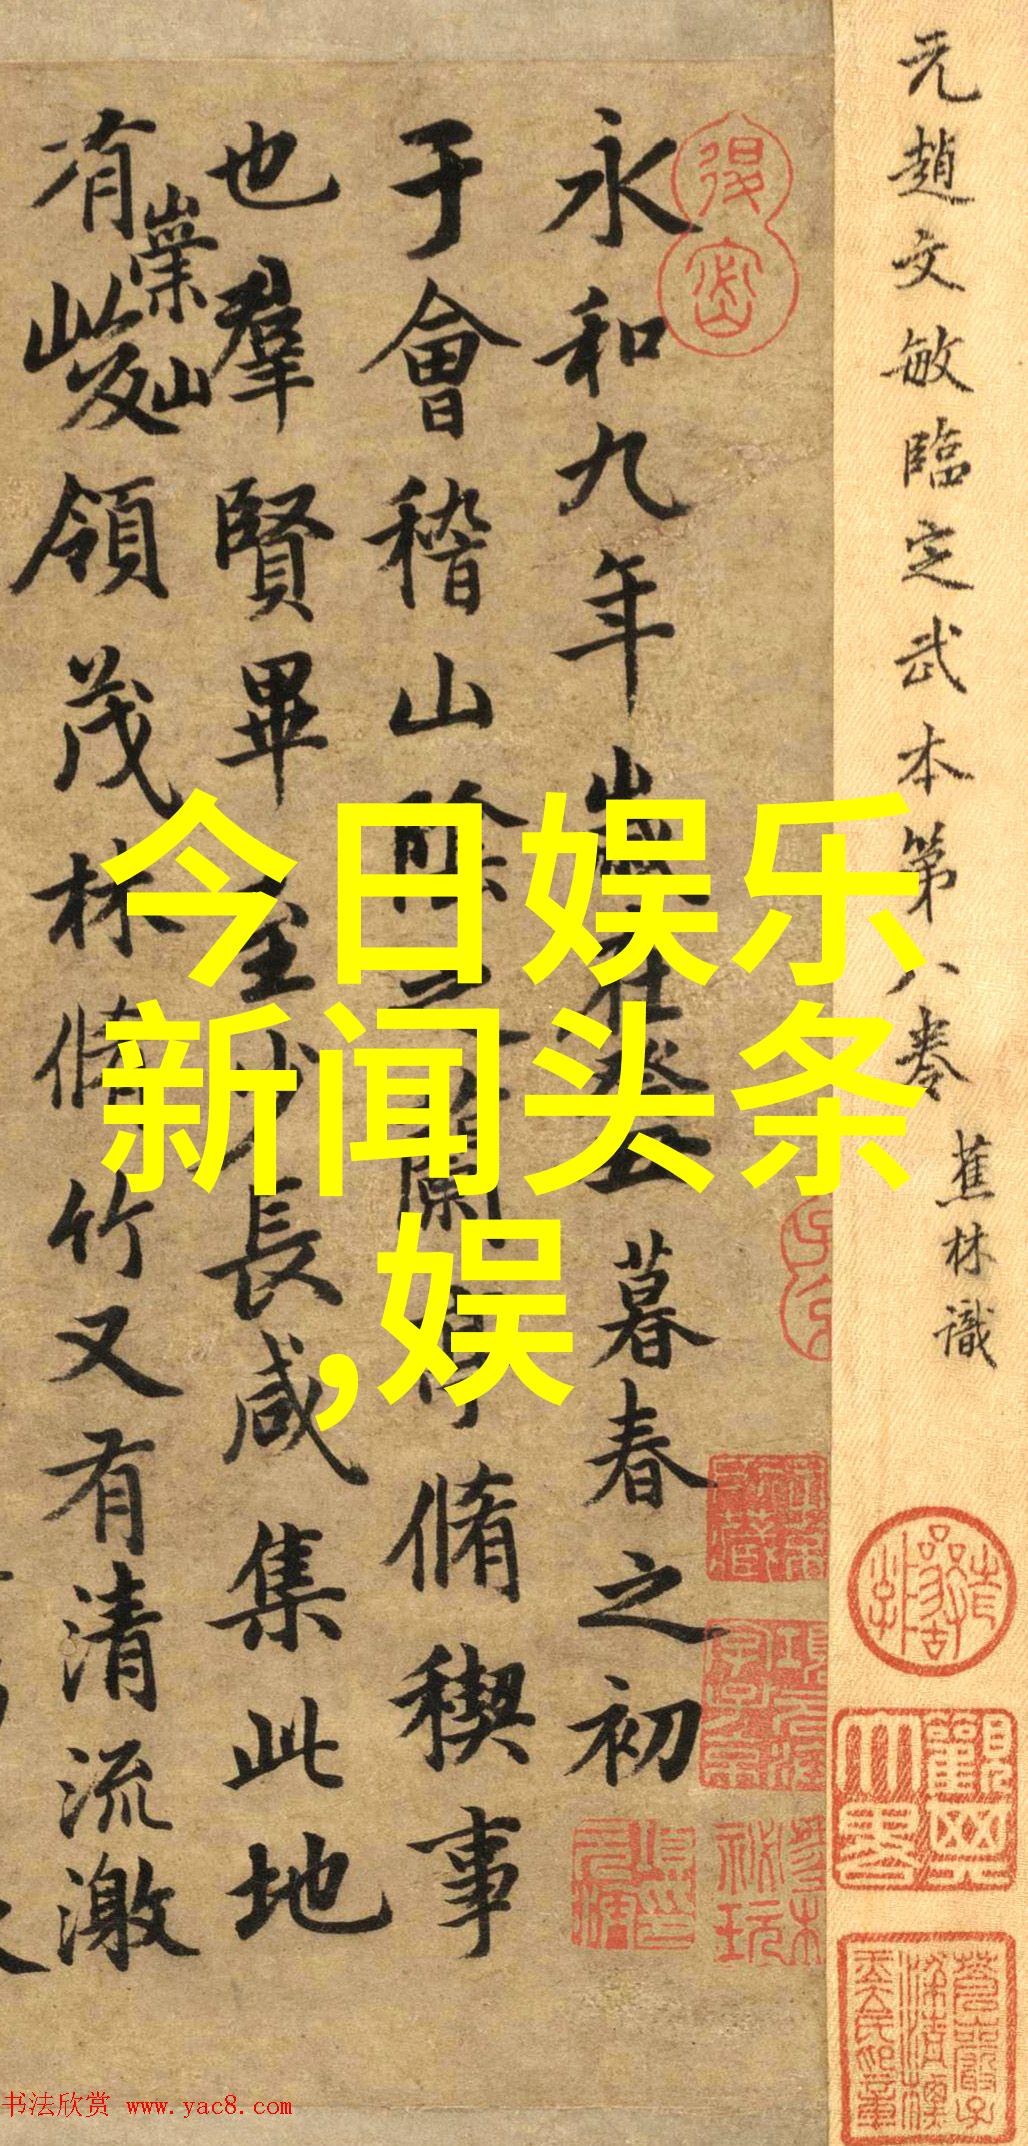 元趙文敏臨定武本第八卷
蕉林識
永和九年歲在癸丑暮春之初
于會稽山陰之蘭亭脩稧事
也羣賢畢至少長咸集此地
有
崇山
峻領茂林脩竹又有清流激
今日娱乐
新闻头条
,娱
书法欣赏 www.yac8.com